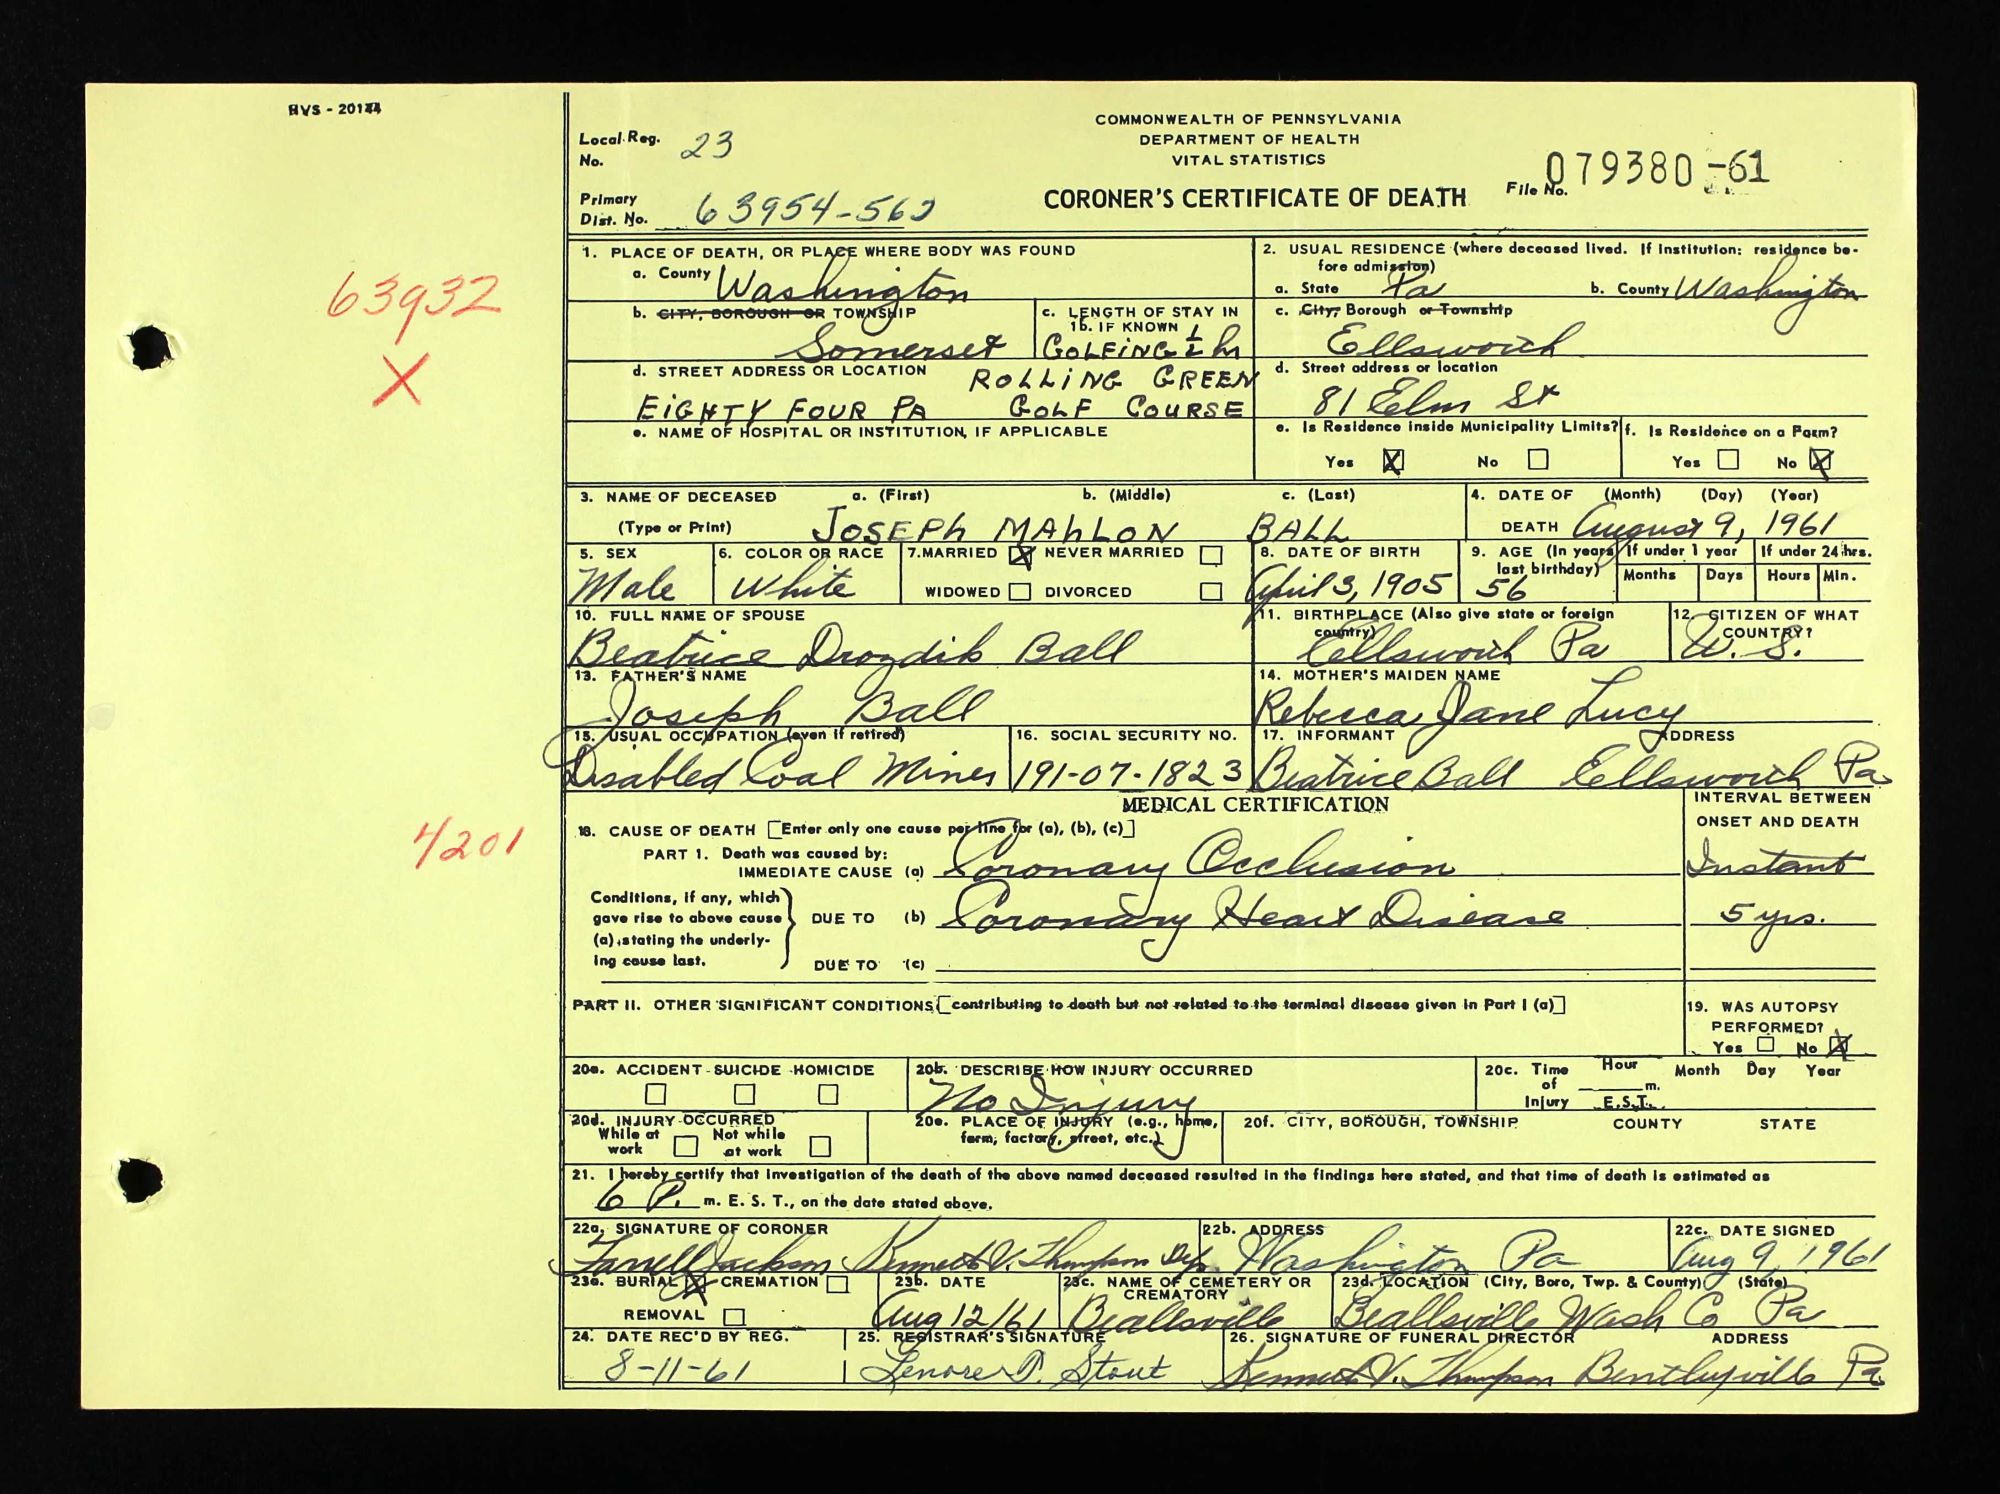 HVS - 20144
Local Reg. No. 23
COMMONWEALTH OF PENNSYLVANIA
DEPARTMENT OF HEALTH
VITAL STATISTICS
CORONER'S CERTIFICATE OF DEATH
File No. 079380-61
Primary Dist. No. 63954-560
63932
X
4201
1. PLACE OF DEATH, OR PLACE WHERE BODY WAS FOUND
a. County Washington
b. CITY, BOROUGH OR TOWNSHIP Somerset
c. LENGTH OF STAY IN 1b. IF KNOWN GOLFING 1/2 hr
d. STREET ADDRESS OR LOCATION ROLLING GREEN
EIGHTY FOUR PA GOLF COURSE
e. NAME OF HOSPITAL OR INSTITUTION, IF APPLICABLE
2. USUAL RESIDENCE (where deceased lived. If institution: residence be-
fore admission)
a. State Pa b. County Washington
c. City, Borough or Township Ellsworth
d. Street address or location
81 Elm St
e. Is Residence inside Municipality Limits? Yes X No
f. Is Residence on a Farm? Yes No X
3. NAME OF DECEASED (Type or Print) a. (First) b. (Middle) c. (Last)
JOSEPH MAHLON BALL
4. DATE OF DEATH (Month) (Day) (Year) August 9, 1961
5. SEX Male
6. COLOR OR RACE White
7. MARRIED X NEVER MARRIED
WIDOWED DIVORCED
8. DATE OF BIRTH April 3, 1905
9. AGE (In years last birthday) 56
If under 1 year Months Days
If under 24 hrs. Hours Min.
10. FULL NAME OF SPOUSE
Beatrice Drozdik Ball
11. BIRTHPLACE (Also give state or foreign country) Ellsworth Pa
12. CITIZEN OF WHAT COUNTRY? U.S.
13. FATHER'S NAME
Joseph Ball
14. MOTHER'S MAIDEN NAME
Rebecca Jane Lucy
15. USUAL OCCUPATION (even if retired)
Disabled Coal Miner
16. SOCIAL SECURITY NO.
191-07-1823
17. INFORMANT ADDRESS
Beatrice Ball Ellsworth Pa
MEDICAL CERTIFICATION
INTERVAL BETWEEN ONSET AND DEATH
18. CAUSE OF DEATH [Enter only one cause per line for (a), (b), (c)]
PART 1. Death was caused by:
IMMEDIATE CAUSE (a) Coronary Occlusion Instant
Conditions, if any, which gave rise to above cause (a), stating the underly-ing cause last.
DUE TO (b) Coronary Heart Disease 5 yrs.
DUE TO (c)
PART II. OTHER SIGNIFICANT CONDITIONS [contributing to death but not related to the terminal disease given in Part I (a)]
19. WAS AUTOPSY PERFORMED? Yes No X
20a. ACCIDENT SUICIDE HOMICIDE
20b. DESCRIBE HOW INJURY OCCURRED
No Injury
20c. Time of Injury Hour m. E.S.T. Month Day Year
20d. INJURY OCCURRED
While at work Not while at work
20e. PLACE OF INJURY (e.g., home, farm, factory, street, etc.)
20f. CITY, BOROUGH, TOWNSHIP COUNTY STATE
21. I hereby certify that investigation of the death of the above named deceased resulted in the findings here stated, and that time of death is estimated as
6 P. m. E. S. T., on the date stated above.
22a. SIGNATURE OF CORONER
Farrell Jackson Kenneth V. Thompson Dep.
22b. ADDRESS
Washington Pa
22c. DATE SIGNED
Aug 9, 1961
23a. BURIAL X CREMATION
REMOVAL
23b. DATE
Aug 12/61
23c. NAME OF CEMETERY OR CREMATORY
Beallsville
23d. LOCATION (City, Boro, Twp. & County) (State)
Beallsville Wash Co Pa
24. DATE REC'D BY REG.
8-11-61
25. REGISTRAR'S SIGNATURE
Lenore D. Stout
26. SIGNATURE OF FUNERAL DIRECTOR ADDRESS
Kenneth V. Thompson Bentleyville Pa